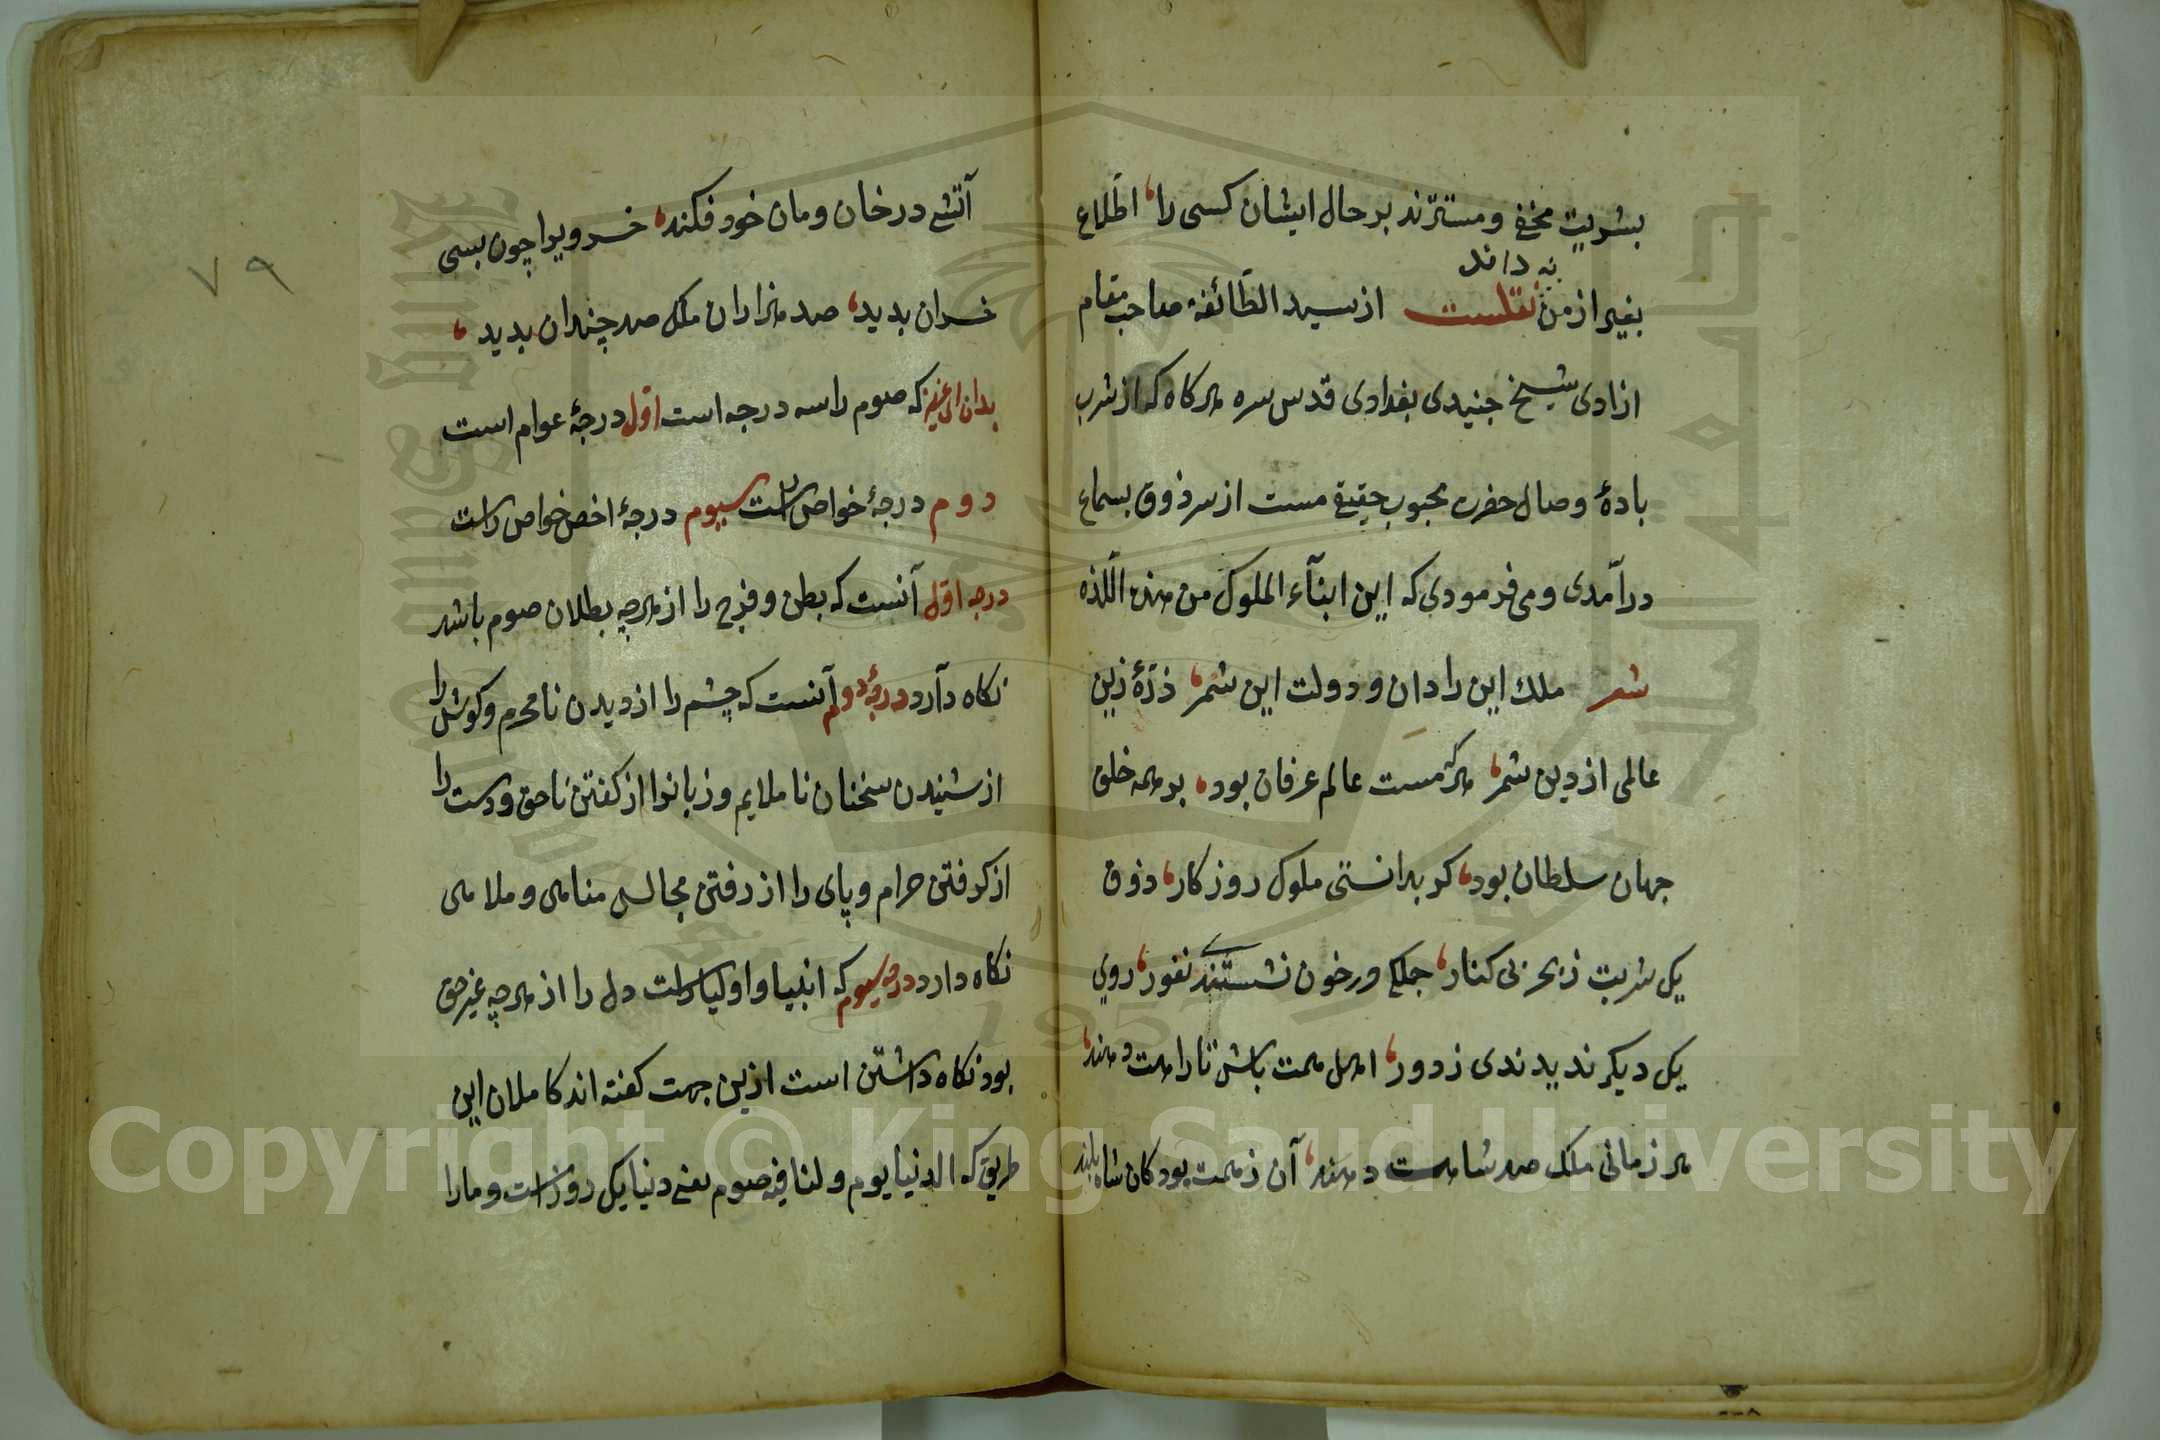 بشریت مخفی و مستترند بر حال ایشان کسی را، اطلاع
نه داند
بغیر از من نقلست از سید الطائفه صاحب مقام
ازادی شیخ جنیدی بغدادی قدس سره هر کاه که از شرب
بادهٔ وصال حضرت محبوب حقیقی مست از سر ذوق بسماع
درآمدی و می فرمودی که این ابنآء الملوک من هذه اللذه
شعر ملک این را دان و دولت این شمر، ذرهٔ زین
عالمی از دین شمر، هر که مست عالم عرفان بود، بر همه خلق
جهان سلطان بود، کر بدانستی ملوک روزکار، ذوق
یک شربت ز بحر بی کنار، جملکی در خون نشستندی نفور، روی
یک دیکر ندیدندی ز دور، اهل همت باش تا راهت دهند،
هر زمانی ملک صد شاهت دهند، آن ز همت بود کان شاه بلند
آتشی در خان و مان خود فکند، خسرویرا چون بسی
خسران بدید، صد هزاران ملک صد چندان بدید،
بدان ای عزیز که صوم را سه درجه است اول درجهٔ عوام است
دوم درجهٔ خواص راست سیوم درجهٔ اخص خواص راست
درجه اول آنست که بطن و فرج را از هرچه بطلان صوم باشد
نکاه دآرد درجهٔ دوم آنست که چشم را از دیدن نامحرم و کوش را
از شنیدن سخنان ناملایم و زبانرا از کفتن ناحق و دست را
از کرفتن حرام و پای را از رفتن مجالس مناهی و ملاهی
نکاه دارد درجه سیوم که انبیا و اولیا راست دل را از هرچه غیر حق
بود نکاه داشتن است ازین جهت کفته اند کاملان این
طریق که الدنیا یوم ولنا فیه صوم یعنی دنیا یک روز است و مارا
٧٩
Copyright © King Saud University
1957